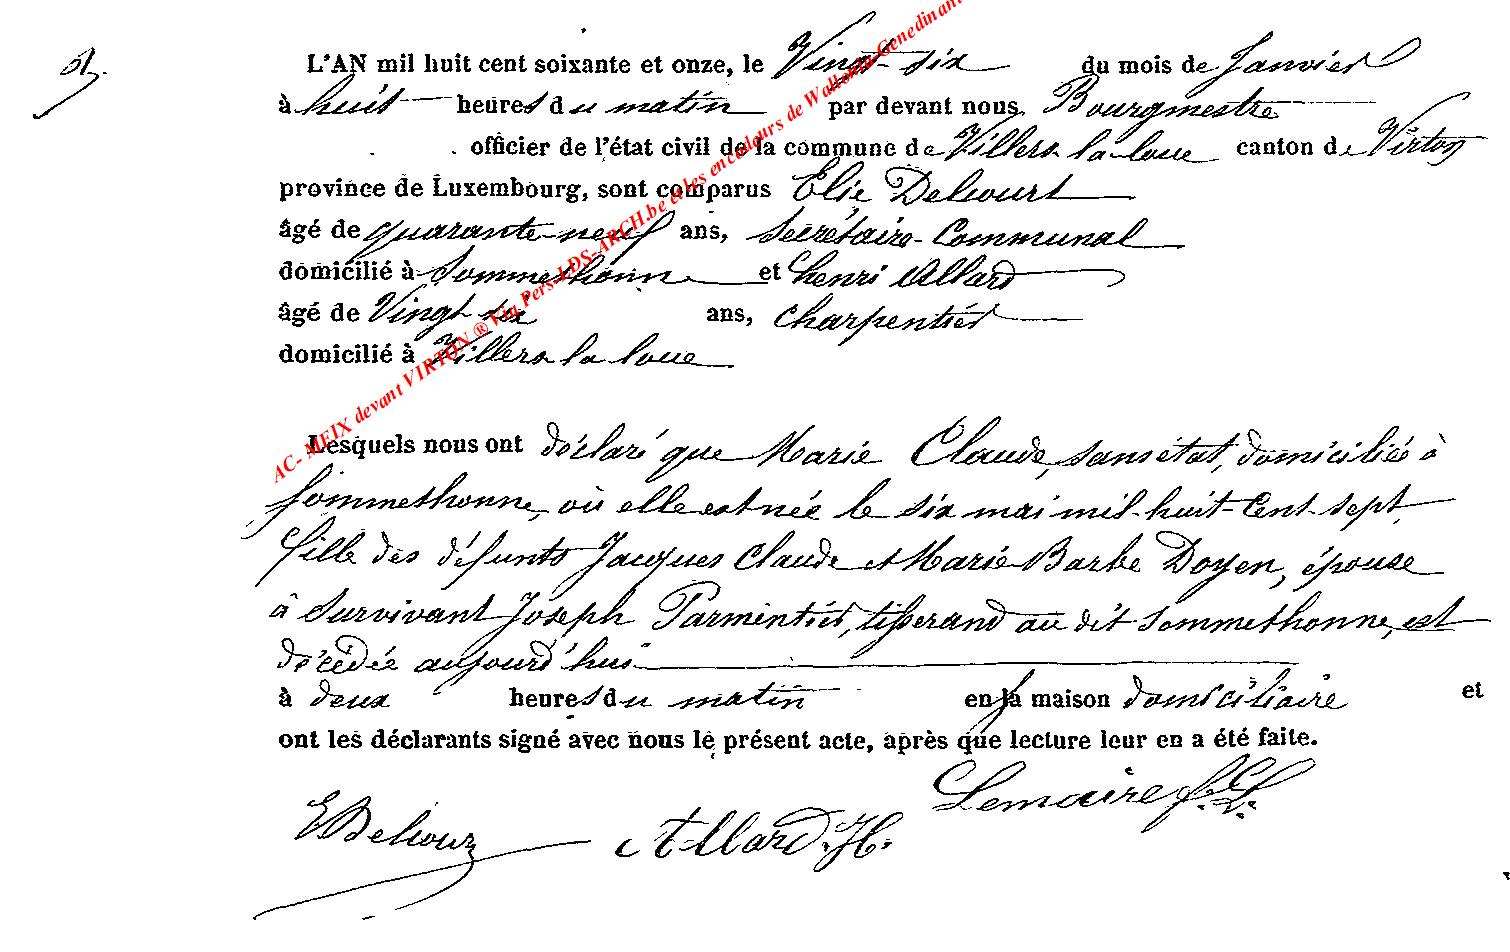 L'AN mil huit cent soixante et onze, le Vingt-six du mois de Janvier
à huit heures du matin par devant nous Bourgmestre
officier de l'état civil de la commune de Villers la loue canton de Virton
province de Luxembourg, sont comparus Elie Delcourt
âgé de quarante-neuf ans, Secrétaire-Communal
domicilié à Sommethonne et henri Allard
âgé de Vingt six ans, charpentier
domicilié à Villers la loue
AC- MEIX devant VIRTON ® Via Pers-LDS-ARCH.be et les encodeurs de Wallonia Genedinant
Lesquels nous ont déclaré que Marie Claude, sans état, domiciliée à
Sommethonne, où elle est née le six mai mil-huit-cent-sept
fille des défunts Jacques Claude et Marie Barbe Doyen, épouse
à survivant Joseph Parmentier, tisserand au dit Sommethonne, est
décédée aujourd'hui
à deux heures du matin en sa maison domiciliaire et
ont les déclarants signé avec nous le présent acte, après que lecture leur en a été faite.
Lemaire f. L.
E Delcour
Allard. H.